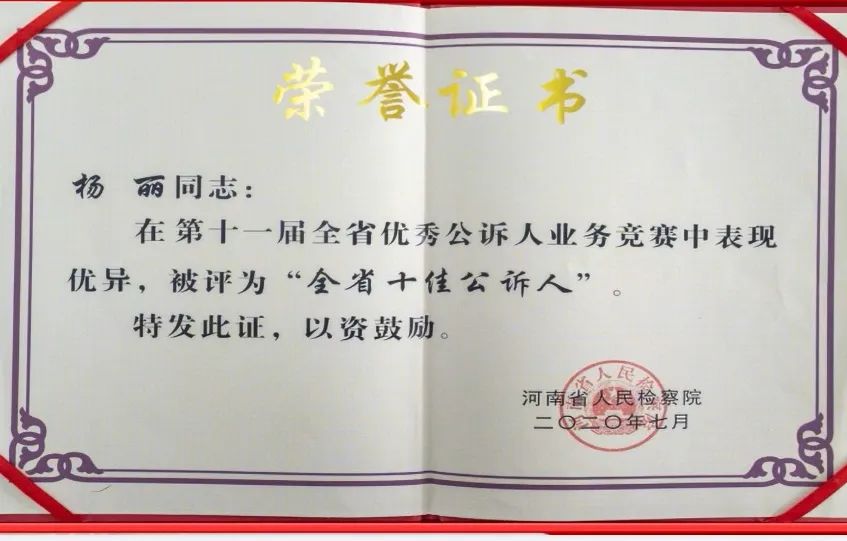 荣誉证书
杨 丽同志：
在第十一届全省优秀公诉人业务竞赛中表现
优异，被评为“全省十佳公诉人”。
特发此证，以资鼓励。
河南省人民检察院
二〇二〇年七月
河南省人民检察院